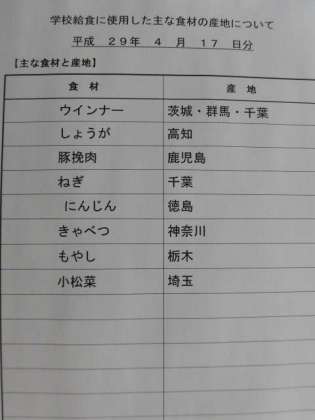 学校給食に使用した主な食材の産地について
平成 29年 4 月 17 日分
【主な食材と産地】
食 材 産 地
ウインナー 茨城・群馬・千葉
しょうが 高知
豚挽肉 鹿児島
ねぎ 千葉
にんじん 徳島
きゃべつ 神奈川
もやし 栃木
小松菜 埼玉